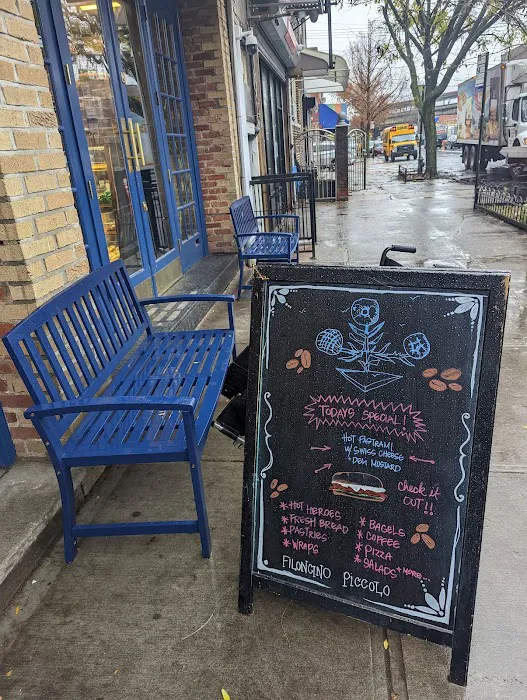 TODAYS SPECIAL!
HOT PASTRAMI
W/ SWISS CHEESE
+ DELI MUSTARD
check it
OUT!!
*HOT HEROES
*FRESH BREAD
*PASTRIES
*WRAPS
*BAGELS
*COFFEE
*PIZZA
*SALADS + MORE...
FILONCINO PICCOLO